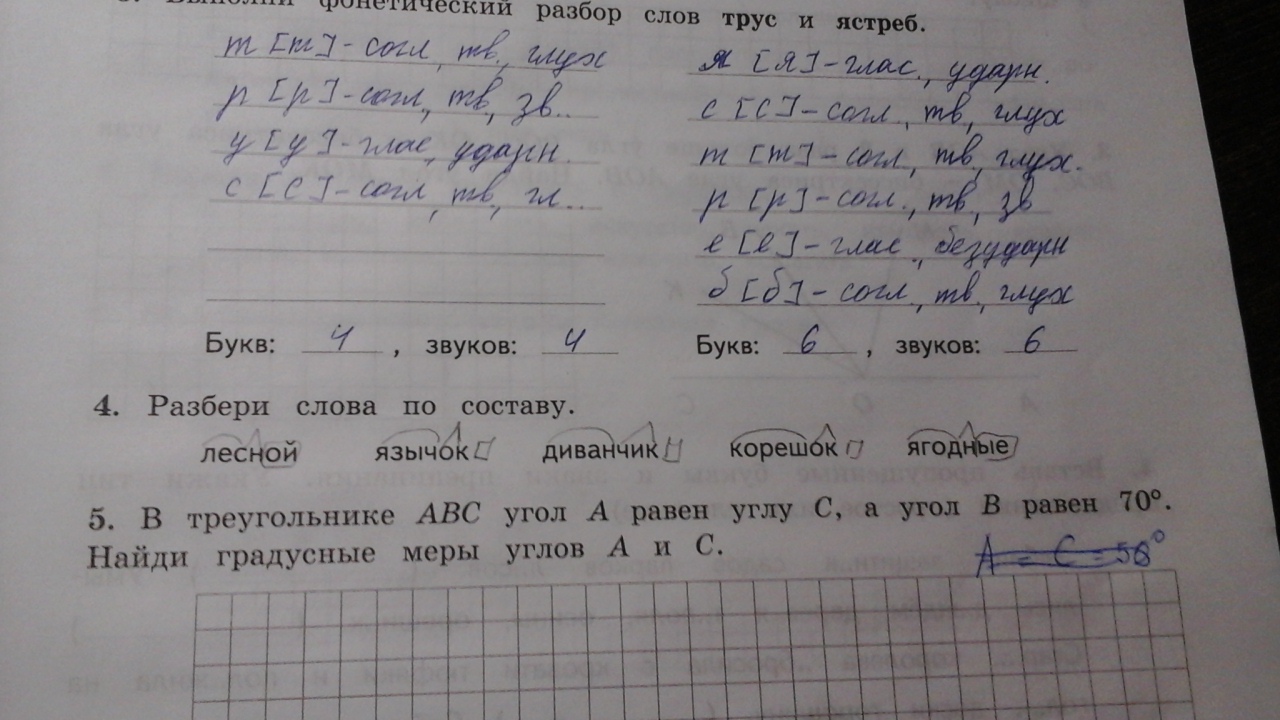 Выполни фонетический разбор слов трус и ястреб.
т [т] - согл, тв, глух
р [р] - согл, тв, зв..
у [у] - глас, ударн.
с [с] - согл, тв, гл..
я [я] - глас., ударн.
с [с] - согл., тв, глух
т [т] - согл, тв, глух.
р [р] - согл., тв, зв
е [е] - глас., безударн
б [б] - согл., тв., глух
Букв: 4, звуков: 4
Букв: 6, звуков: 6
4. Разбери слова по составу.
лесной язычок диванчик корешок ягодные
5. В треугольнике ABC угол A равен углу C, а угол B равен 70°.
Найди градусные меры углов A и C.
A = C = 58°